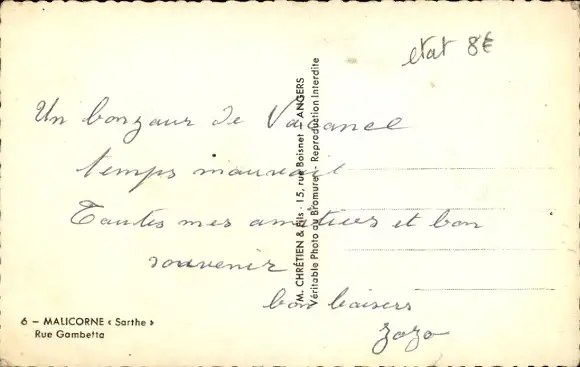 etat 8€
Un bonzour de Vacancel
temps mauvait
Toutes mes amitiers et bon
souvenir
bon baisers
zozo
M. CHRÉTIEN & Fils - 15, rue Boisnet - ANGERS
Véritable Photo au Bromure - Reproduction Interdite
6 - MALICORNE « Sarthe »
Rue Gambetta